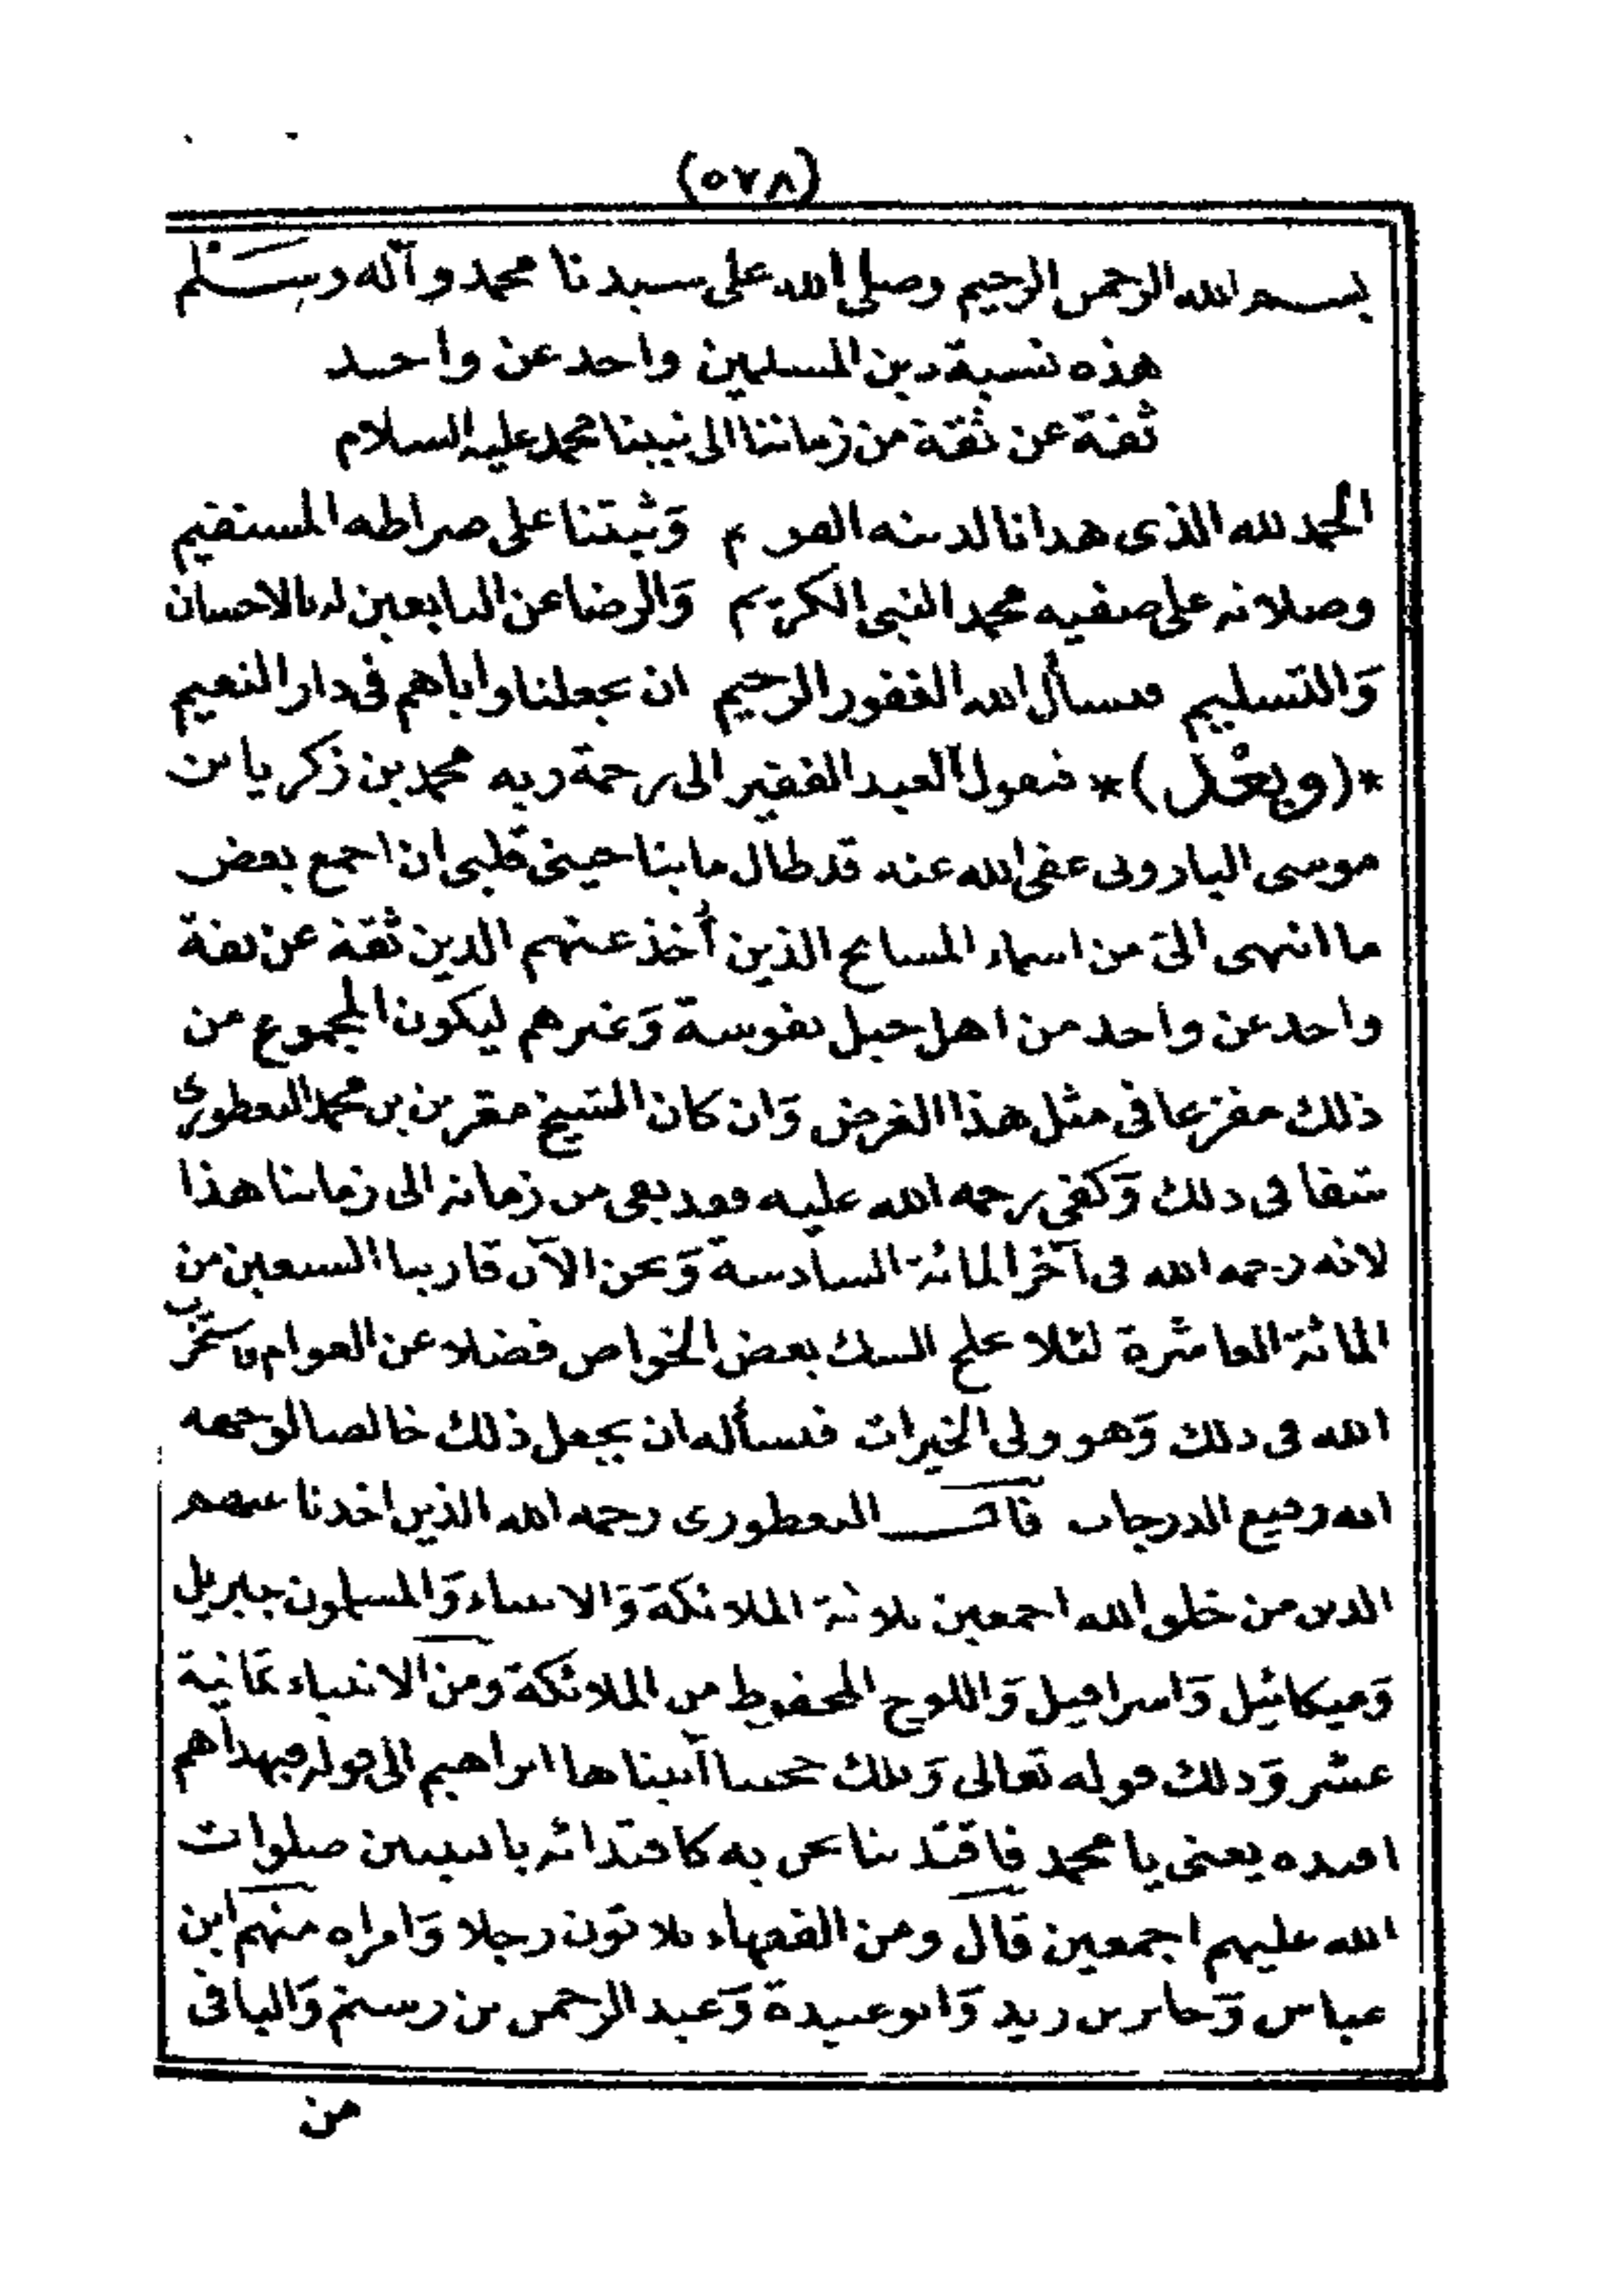 (٥٧٨)
بسم الله الرحمن الرحيم وصلى الله على سيدنا محمد وآله وسلم
هذه نسبة دين المسلمين واحد عن واحد
ثقة عن ثقة من زماننا الى نبينا محمد عليه السلام
الحمد لله الذى هدانا لدينه القويم وَثبتنا على صراطه المستقيم
وصلاته على صفيه محمد النبى الكريم وَالرضا عن التابعين له بالاحسان
وَالتسليم ونسأل الله الغفور الرحيم ان يجعلنا واياهم فى دار النعيم
*(وبعْد)* فيقول العبد الفقير الى رحمة ربه محمد بن زكريا بن
موسى البارونى عفى الله عنه قد طال ما بنا حينى قلبى ان اجمع بعض
ما انتهى الىّ من اسماء المشايخ الذين أُخذ عنهم الدين ثقة عن ثقة
واحد عن واحد من اهل جبل نفوسة وَغيرهم ليكون المجموع من
ذلك مفزعا فى مثل هذا الغرض وَان كان الشيخ مقرين بن محمد البغطورى
شفا فى ذلك وَكفى رحمه الله عليه فقد بقى من زمانه الى زماننا هذا
لانه رحمه الله فى آخر المائة السادسة وَنحن الآن قاربنا السبعين من
المائة العاشرة لئلا علج الشك بعض الخواص فضلا عن العوام
الله فى ذلك وَهو ولى الخيرات فنسأله ان يجعل ذلك خالصا لوجهه
انه رفيع الدرجات قال البغطورى رحمه الله الذين اخذنا عنهم
الدين من خلق الله اجمعين ثلاثة الملائكة وَالانبياء وَالمسلمون جبريل
وَميكائيل وَاسرافيل وَاللوح المحفوظ من الملائكة ومن الانبياء ثمانية
عشر وَذلك قوله تعالى وَتلك حجتنا آتيناها ابراهيم الى قوله فبهداهم
اقتده يعنى يا محمد فاقتدينا نحن به كاقتدائه بالنبيين صلوات
الله عليهم اجمعين قال ومن الفقهاء ثلاثون رجلا وَامراه منهم ابن
عباس وَجابر بن زيد وَابو عبيدة وَعبد الرحمن بن رستم وَالباقى
من